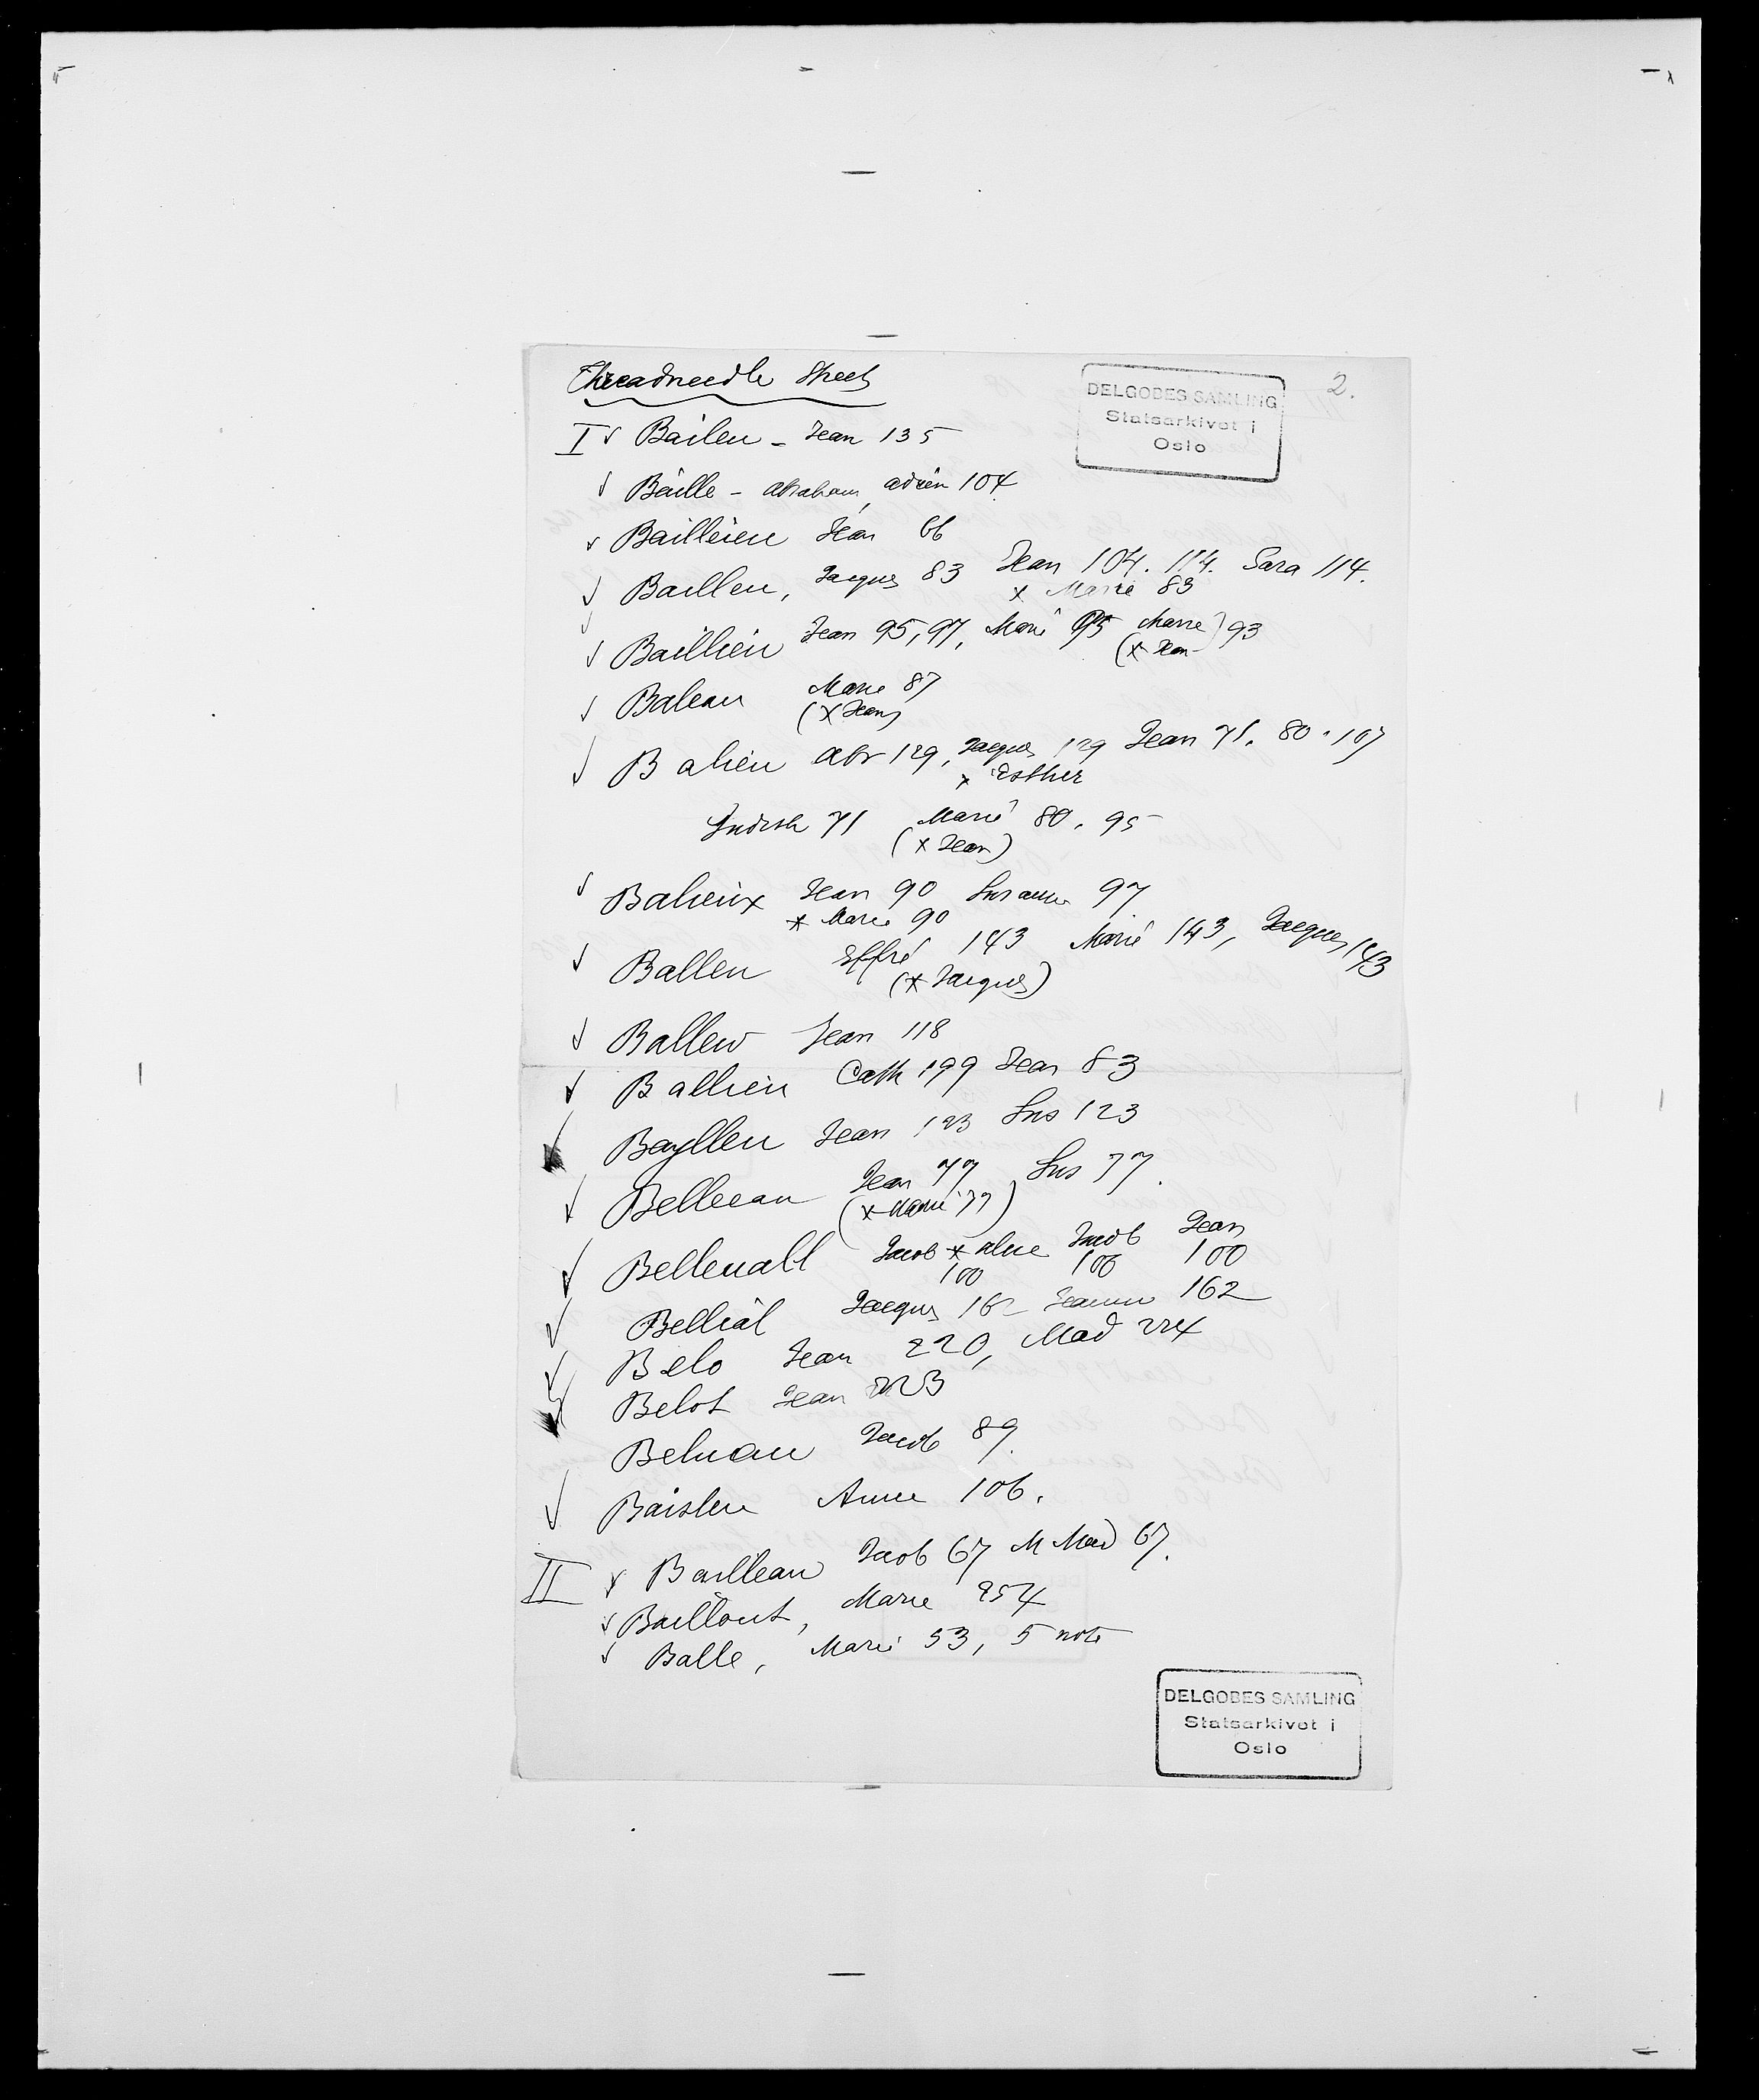 Threadneedle Street
DELGOBES SAMLING
Statsarkivet i
Oslo
2.
I √ Bailen - Jean 135
√ Baille - Abraham, adrien 104
√ Bailleien Jean 66
√ Baillen, Jaques 83 Jean 104. 114. Sara 114.
x Marie 83
√ Baillieu Jean 95, 97, Marie 95 Marie 93
(x Jean)
√ Baleau Marie 87
(x Jean)
√ Balieu Abr 129, Jaques 129 Jean 71. 80. 107
x Esther
Judith 71 Marie 80. 95
(x Jean)
√ Balieux Jean 90 Susanne 97
x Marie 90
√ Balleu 143 Marie 143, Jacques 143
(x Jacques)
√ Ballew Jean 118
√ Ballieu Cath 199 Jean 83
√ Baylleu Jean 123 Sus 123
√ Belleeau Jean 77 Sus 77.
(x Marie 77)
√ Belleuall Jacob x Jacob Jean
100 100 100
√ Bellial Jaques 162 Jeanne 162
√ Belo Jean 220, Mad 224
√ Belot Jean
Beluau Jacob 89.
√ Baisleu Anne 106.
II √ Bailleau Jacob 67 M Mad 67.
√ Baillout, Marie 254
√ Balle, Marie 53, 5 note
DELGOBES SAMLING
Statsarkivet i
Oslo